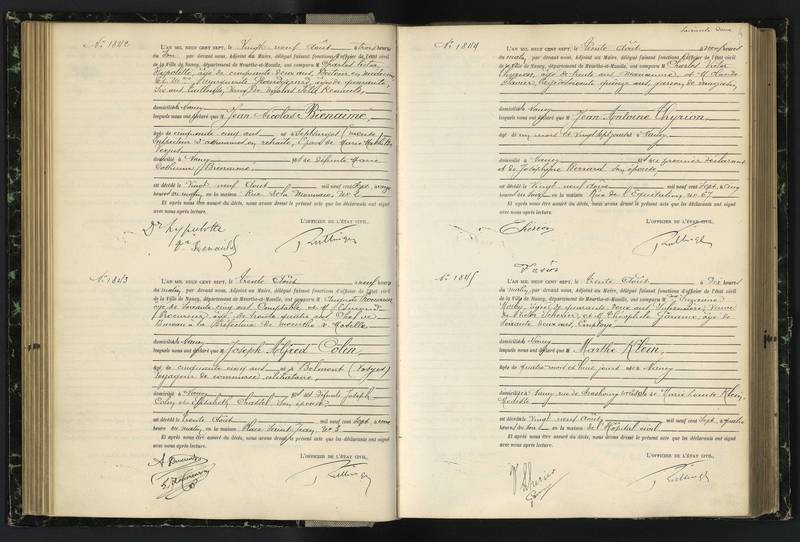 N° 1842
L'AN MIL NEUF CENT SEPT, le Vingt neuf Août à trois heures
du Soir par devant nous, Adjoint au Maire, délégué faisant fonctions d'officier de l'état civil
de la Ville de Nancy, département de Meurthe-et-Moselle, ont comparu M Charles Victor
Hypolitte, âgé de cinquante deux ans, Docteur en médecine
Et M Marguerite âgée de quarante
Six ans
domiciliés à Nancy
lesquels nous ont déclaré que M Jean Nicolas Bienaimé,
âgé de cinquante cinq ans né à
en retraite, Époux de Marie
domicilié à Nancy fils de défunte Marie
Catherine Bienaimé
est décédé le Vingt neuf Août mil neuf cent Sept, à onze
heures du matin, en la maison Rue de la Monnaie, N° 2
Et après nous être assuré du décès, nous avons dressé le présent acte que les déclarants ont signé
avec nous après lecture.
L'OFFICIER DE L'ÉTAT CIVIL,
Dr hypolitte
N° 1843
L'AN MIL NEUF CENT SEPT, le trente Août à neuf heures
du matin, par devant nous, Adjoint au Maire, délégué faisant fonctions d'officier de l'état civil
de la Ville de Nancy, département de Meurthe-et-Moselle, ont comparu M
âgé de soixante cinq ans, Comptable et M
âgé de trente quatre ans Chef de
Bureau à la Préfecture de Meurthe & Moselle
domiciliés à Nancy
lesquels nous ont déclaré que M Joseph Alfred Colin,
âgé de cinquante cinq ans né à Belmont (Vosges)
Voyageur de commerce célibataire
domicilié à Nancy fils de défunts Joseph
Colin et Elisabeth Chastel Son épouse
est décédé le trente Août mil neuf cent Sept, à une
heure du matin, en la maison Place Saint Jean, N° 3
Et après nous être assuré du décès, nous avons dressé le présent acte que les déclarants ont signé
avec nous après lecture.
L'OFFICIER DE L'ÉTAT CIVIL,
Soixante deux
N° 1844
L'AN MIL NEUF CENT SEPT, le trente Août à neuf heures
du matin, par devant nous, Adjoint au Maire, délégué faisant fonctions d'officier de l'état civil
de la Ville de Nancy, département de Meurthe-et-Moselle, ont comparu M Charles Victor
Thyrion, âgé de trente ans,
âgé de soixante quinze ans, garçon de magasin,
domiciliés à Nancy
lesquels nous ont déclaré que M Jean Antoine Thyrion,
âgé de un mois et vingt sept jours né à Nancy
domicilié à Nancy fils du premier déclarant
et de Joséphine Son épouse,
est décédé le Vingt neuf Août mil neuf cent Sept, à cinq
heures du Soir, en la maison Rue de N° 67
Et après nous être assuré du décès, nous avons dressé le présent acte que les déclarants ont signé
avec nous après lecture.
L'OFFICIER DE L'ÉTAT CIVIL,
N° 1845
L'AN MIL NEUF CENT SEPT, le trente Août à Dix heures
du matin, par devant nous, Adjoint au Maire, délégué faisant fonctions d'officier de l'état civil
de la Ville de Nancy, département de Meurthe-et-Moselle, ont comparu M Suzanne
âgée de quarante deux ans Infirmière, Veuve
de Victor et M Théophile âgé de
soixante deux ans, Employé
domiciliés à Nancy
lesquels nous ont déclaré que M Marthe Klein,
âgée de quatre mois et huit jours née à Nancy
domiciliée à Nancy, rue de Strasbourg de Marie Klein,
Modiste
est décédée Vingt neuf Août mil neuf cent Sept, à quatre
heures du Soir, en la maison de l'Hôpital civil
Et après nous être assuré du décès, nous avons dressé le présent acte que les déclarants ont signé
avec nous après lecture.
L'OFFICIER DE L'ÉTAT CIVIL,